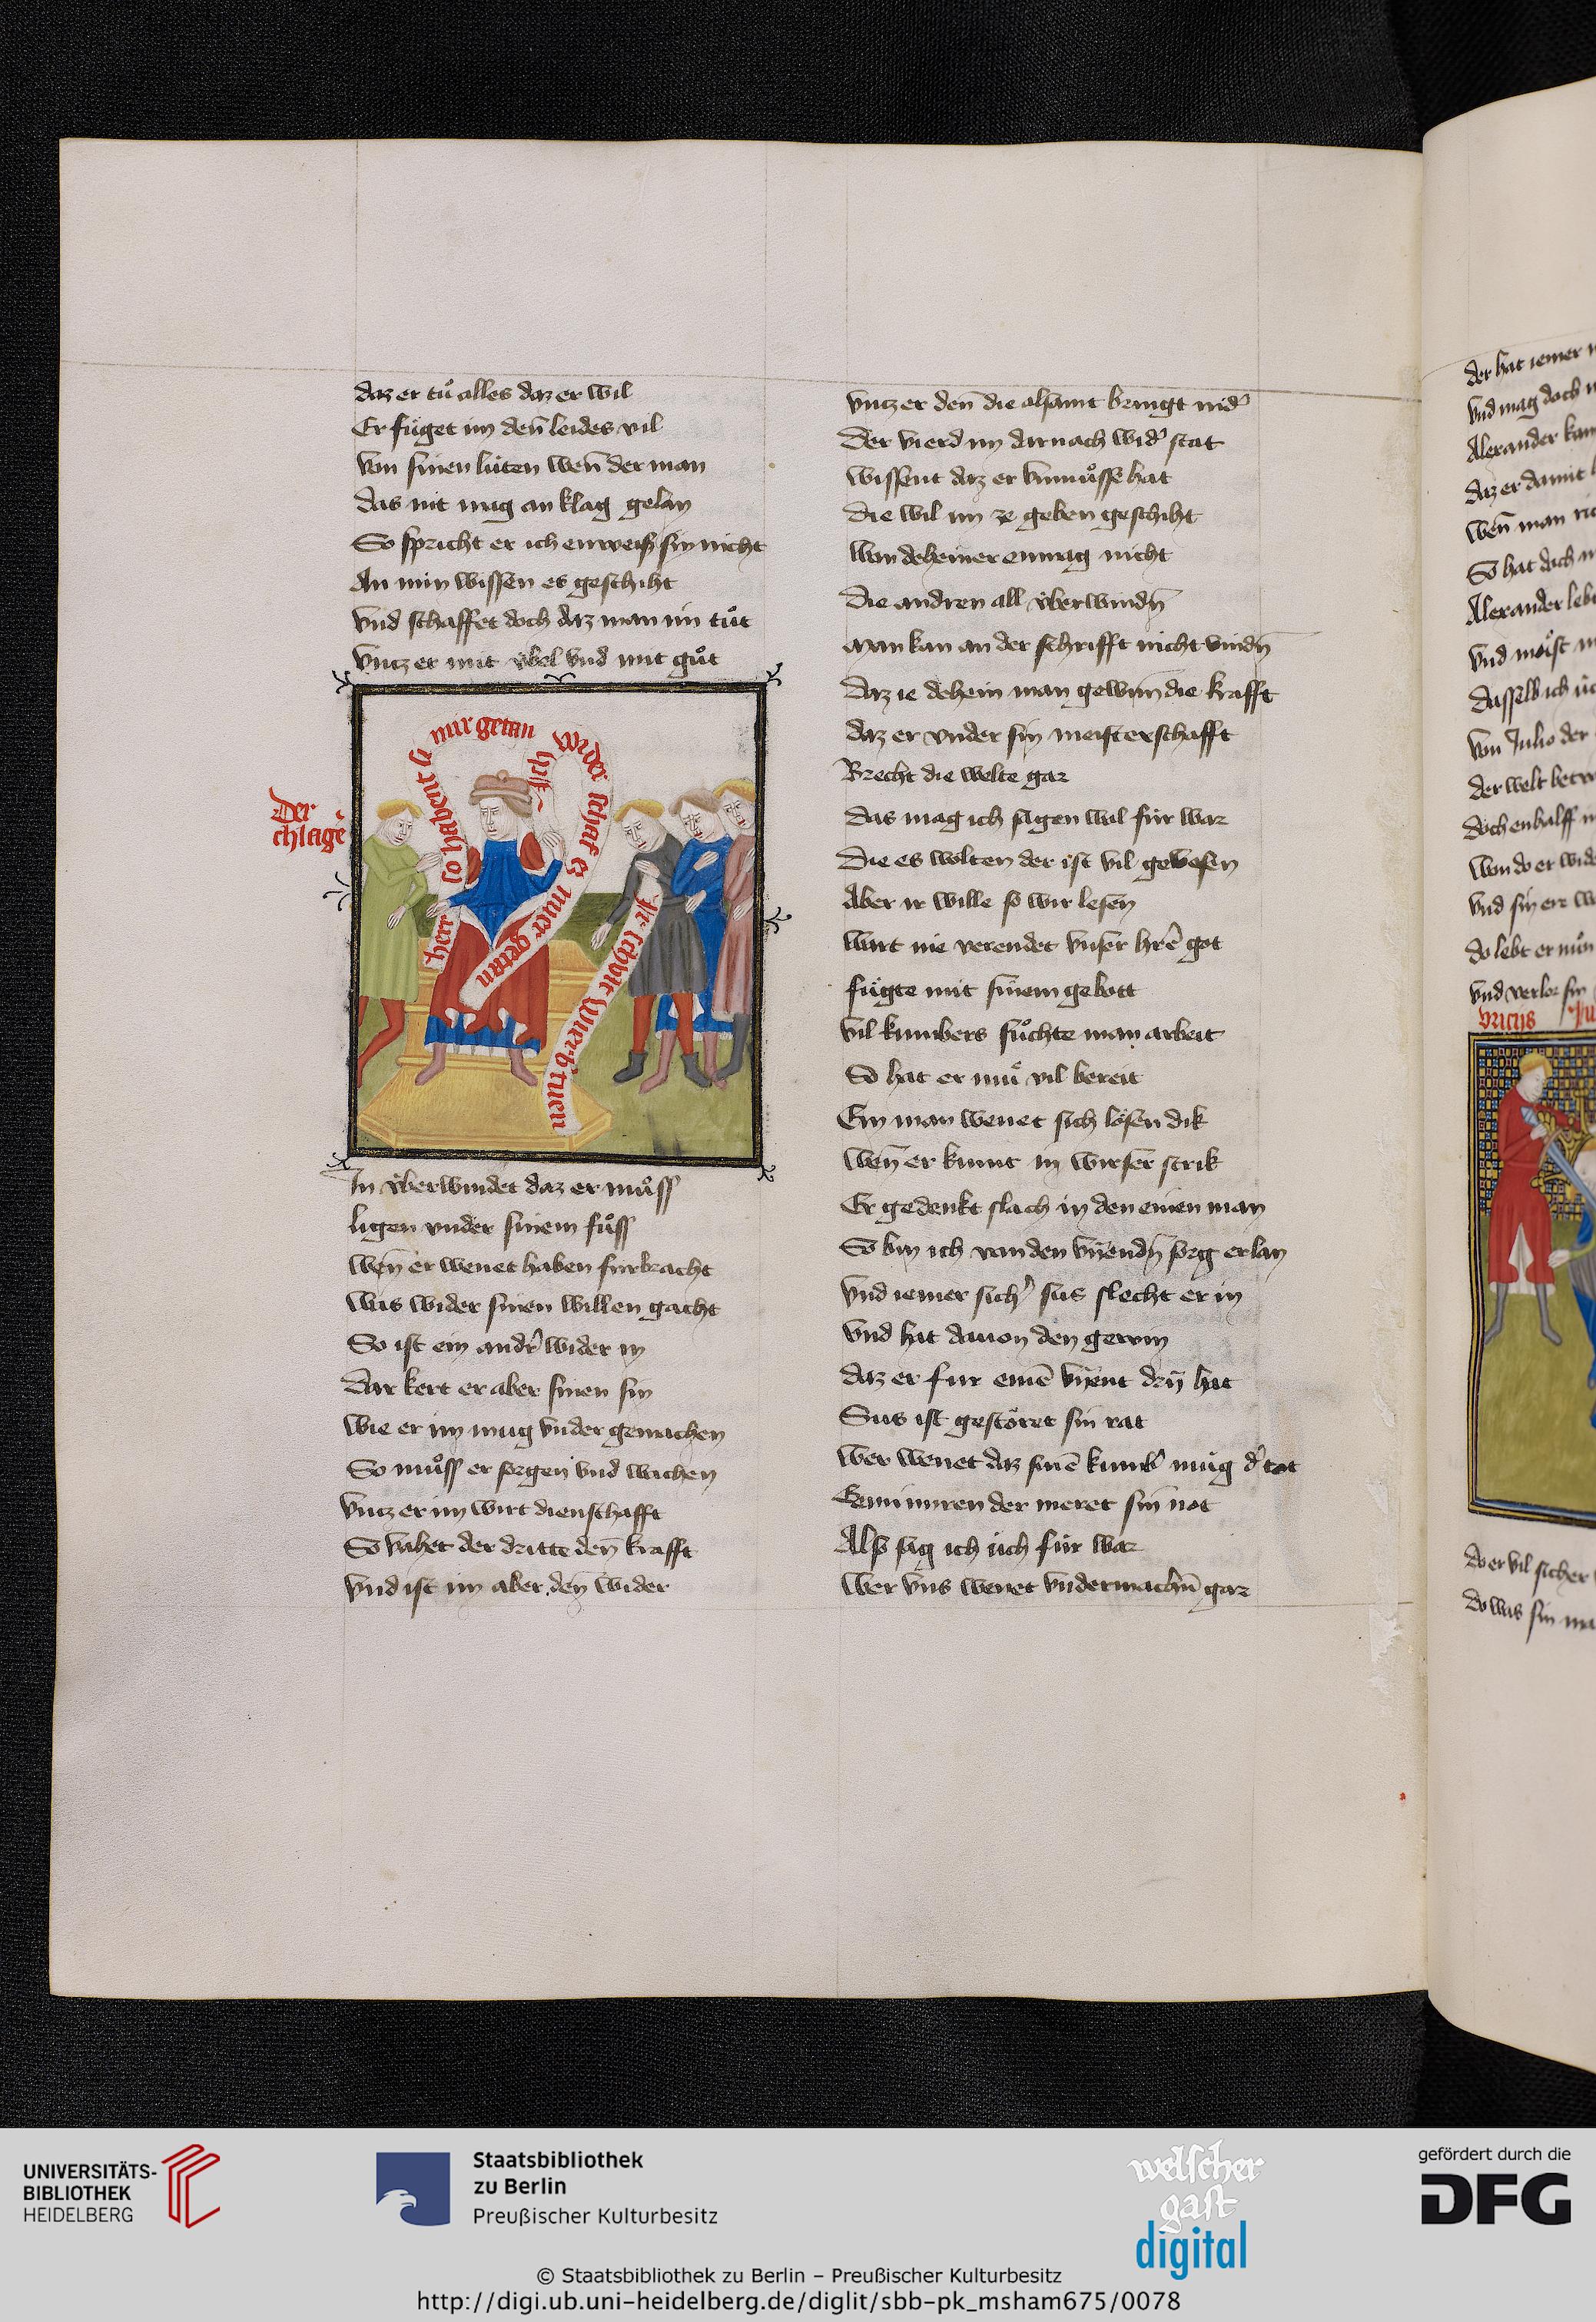 daz er tuͦ alles daz er wil
Er fuͤget im den̄ leides vil
Von sinen luͤten wen̄ der man
das nit mag an klag gelan
So spricht er ich enweiß sin nicht
An min wissen es geschiht
Vnd schaffet doch daz man im tuͦt
Vncz er mit vͤbel vnd mit guͦt
Der
chlagē
herr so habent si mir getan
ich
wider schaf es mier getan
ir schvlt wierß tuen
In vͤberwindet daz er muͦss
ligen vnder sinem fuͦss
Wen̄ er wenet haben furbracht
Was wider sinen willen gacht
So ist ein andr̄ wider in
Dar kert er aber sinen sin
Wie er im mug vnder gemachen
So muͦss er sorgen vnd wachen
Vncz er im wirt dienschafft
So vahet der dritte den̄ krafft
Vnd ist im aber den̄ wider
Vncz er den̄ die alsamt bringt nidˀ
Der vierd im darnach widˀ stat
Wissent daz er vnmuͦsse hat
Die wil im ze geben geschiht
Wan deheiner enmag nicht
Die andren all vͤberwindn̄
Man kan an der schrifft nicht vindn̄
Daz ie dehein man gewun̄ die krafft
daz er vnder sin meisterschafft
Brecht die welte gar
Das mag ich sagen wol fuͤr war
Die es wolten der ist vil gewesen
Aber ir wille so wir lesen
Wart nie verendet vnser hrē got
fuͤgte mit sinem gebott
Vil kumbers suͦchte man arbeit
So hat er muͤ vil bereit
Ein man wenet sich loͤsen dik
Wen̄ er kumt in wirser strik
Er gedenkt slach in den einen man
So bin ich von den vyendn̄ sorg erlan
Vnd iemer sichˀ sus slecht er in
Vnd hat dauon den gewin
Daz er fur einē vyent dry hat
Sus ist gestoͤret sin rat
Wer wenet daz sinē kumbˀ muͤg dˀ tot
Geminnren der meret sin not
Also sag ich uͤch fuͤr war
Wer vns wenet vndermachn̄ gar
der hat iemer
Vnd mag doch
Alexander kam
daz er damit
Wen̄ man
So hat doch
Alexander lebt
Vnd
Dasselb ich
Von Julio der
der welt
doch enhalff
Wan do er wid
Vnd sin err
do lebt er
Vnd verlor sin
do er vil sicher
do was sin
UNIVERSITÄTS-
BIBLIOTHEK
HEIDELBERG
Staatsbibliothek
zu Berlin
Preußischer Kulturbesitz
welscher
gast
digital
gefördert durch die
DFG
© Staatsbibliothek zu Berlin – Preußischer Kulturbesitz
http://digi.ub.uni-heidelberg.de/diglit/sbb-pk_msham675/0078